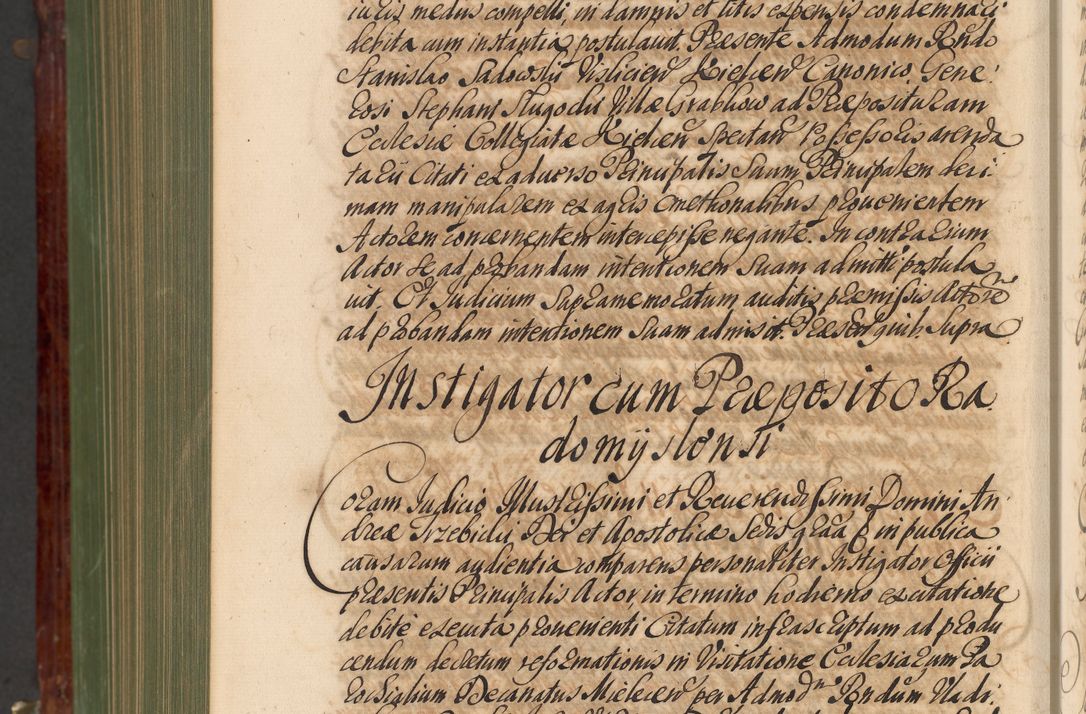 iuris mediis compelli, in damnis et litis expensis condemnari
debita cum instantia postulavit. Præsente Admodum Rndo
Stanislao Sadowski Visliciens Kielcien Canonico, Gene:
rosi Stephani Slugocki Villæ Grabkow ad Præposituram
Ecclesiæ Collegiatæ Kielcen spectan Possessoris arenda
tarii Citati ex adverso Principalis Suum Principalem deci
mam manipularem ex agris Cmethonalibus provenientem
Actorem concernentem intercepisse negante. In contrarium
Actor se ad probandam intentionem Suam admitti postula
vit. Et Judicium Supramemoratum auditis præmissis Actorem
ad probandam intentionem Suam admisit. Præsen quib. Supra
Instigator cum Præposito Ra
domyslensi
Coram Judicio Illustrissimi et Reverendissimi Domini An
dreæ Trzebicki Dei et Apostolicæ Sedis graa &c in publica
causarum audientia comparens personaliter Instigator Officii
præsentis Principalis Actor, in termino hodierno ex citatione
debite executa provenienti Citatum infrascriptum ad produ
cendum decretum reformationis in Visitatione Ecclesiarum Pa
rochialium Decanatus Mielecen per Admodm Rndum Vladi: